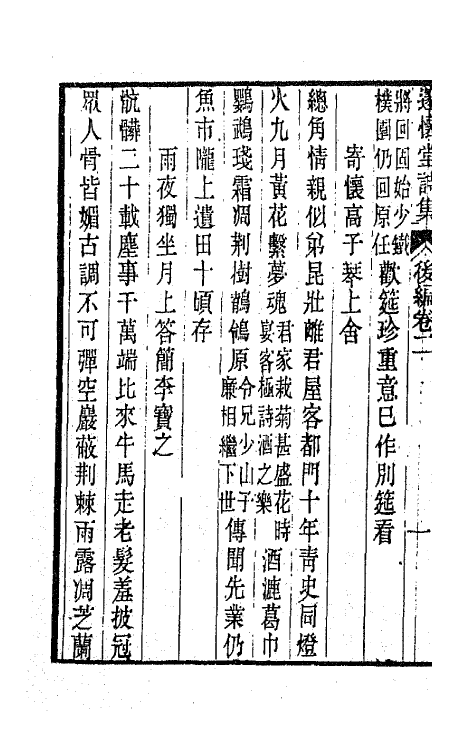 邃懷堂詩集 後編卷二 一
將回固始少巘樸園仍回原任歡筵珍重意已作別筵看
寄懷高子琴上舍
總角情親似弟昆壯離君屋客都門十年靑史同燈
火九月黃花繫夢魂君家栽菊甚盛花時宴客極詩酒之樂酒漉葛巾
鸚鵡琖霜凋荆樹鶺鴒原令兄少山子廉相繼下世傳聞先業仍
魚市隴上遺田十頃存
雨夜獨坐月上答簡李寶之
骯髒二十載塵事千萬端比來牛馬走老髮羞披冠
眾人骨皆媚古調不可彈空巖蔽荆棘雨露凋芝蘭